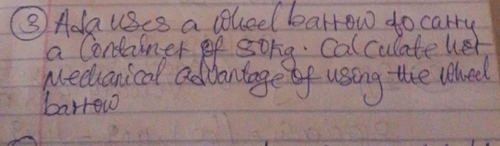 ③ Ada uses a wheel barrow to carry
a container of 50kg. Calculate her
Mechanical advantage of using the wheel
barrow